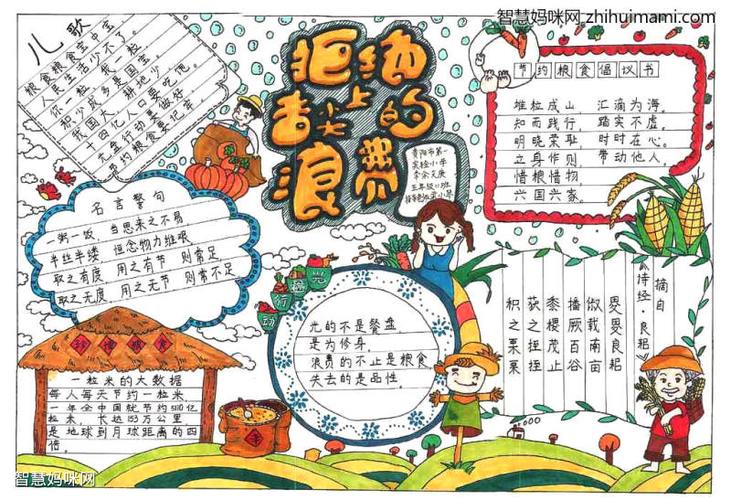 智慧妈咪网 zhihuimami.com
儿歌
粮食粮食宝中宝
人民生活少不了。
你一粒，我一粒
积少成多是国宝
我国大，耕地少
十四亿人口要吃饱
光盘行动要做好
节约粮食要记牢。
拒绝
舌尖上的
浪费
贵阳市第一
实验小学
五年级
节约粮食倡议书
堆粒成山 汇滴为海。
知而践行， 踏实不虚
明晓荣耻 时时在心。
立身作则 带动他人，
惜粮惜物
兴国兴家。
名言警句
一粥一饭，当思来之不易
半丝半缕 恒念物力维艰
取之有度，用之有节 则常足
取之无度，用之无节 则常不足
光盘行动
光的不是餐盘
是为修身，
浪费的不止是粮食
失去的是品性。
摘自
《诗经·良耜
畟畟良耜
俶载南亩
播厥百谷
黍稷茂止
获之挃挃
积之栗栗
珍惜粮食
一粒米的大数据
每人每天节约一粒米
一年全中国就节约5110亿
粒米，长达153万公里
是地球到月球距离的四
倍。
米
智慧妈咪网